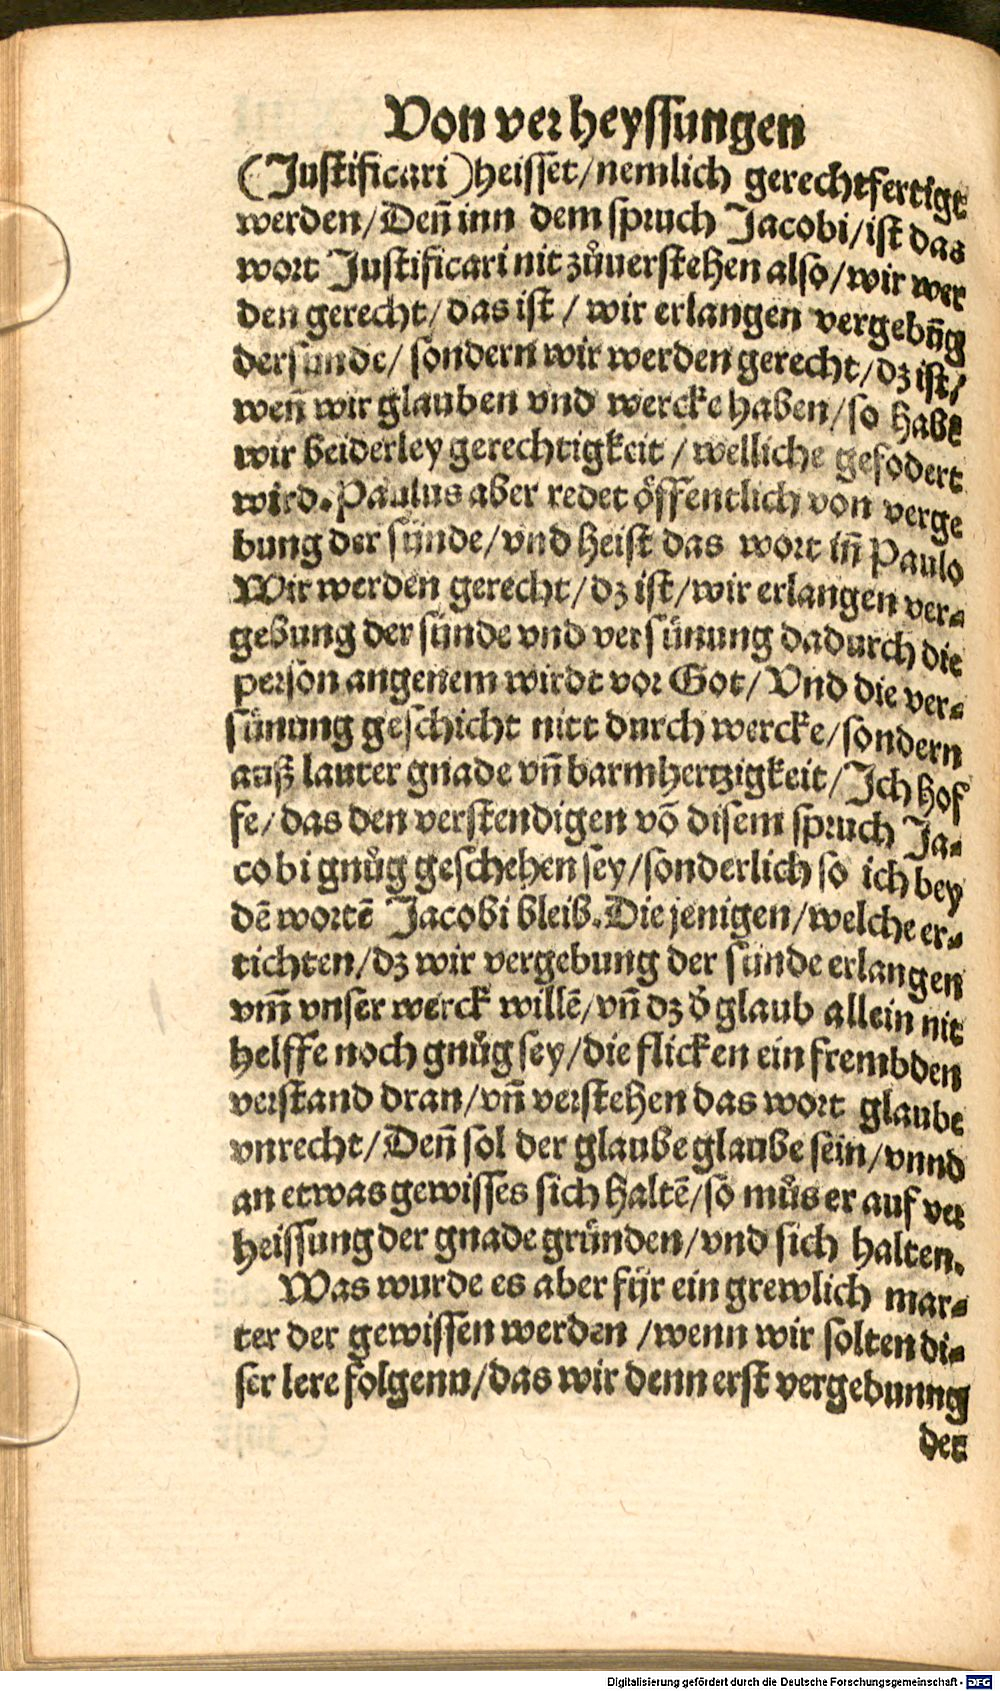 Von verheyssungen
(Justificari) heisset/ nemlich gerechtfertigt
werden/ Deñ inn dem spruch Jacobi/ ist das
wort Justificari nit zůuerstehen also/ wir wer
den gerecht/ das ist / wir erlangen vergebũg
der sunde/ sondern wir werden gerecht/ dz ist/
weñ wir glauben vnd wercke haben/ so habẽ
wir beiderley gerechtigkeit / welliche gefodert
wird. Paulus aber redet öffentlich von verge
bung der sünde/ vnd heist das wort iñ Paulo
Wir werden gerecht/ dz ist/ wir erlangen ver-
gebung der sünde vnd versünung dadurch die
person angenem wirdt vor Got/ Vnd die ver-
sünung geschicht nitt durch wercke/ sondern
auß lauter gnade vñ barmhertzigkeit/ Ich hof
fe/ das den verstendigen võ disem spruch Ja-
cobi gnůg geschehen sey/ sonderlich so ich bey
dẽ wortẽ Jacobi bleib. Die jenigen/ welche er-
tichten/ dz wir vergebung der sünde erlangen
vm̃ vnser werck willẽ/ vñ dz d̕ glaub allein nit
helffe noch gnůg sey/ die flicken ein frembden
verstand dran/ vñ verstehen das wort glaube
vnrecht/ Deñ sol der glaube glaube sein/ vnnd
an etwas gewisses sich haltẽ/ so můs er auf ver
heissung der gnade gründen/ vnd sich halten.
Was wurde es aber für ein grewlich mar-
ter der gewissen werden / wenn wir solten di-
ser lere folgenn/ das wir denn erst vergebunng
der
Digitalisierung gefördert durch die Deutsche Forschungsgemeinschaft - DFG